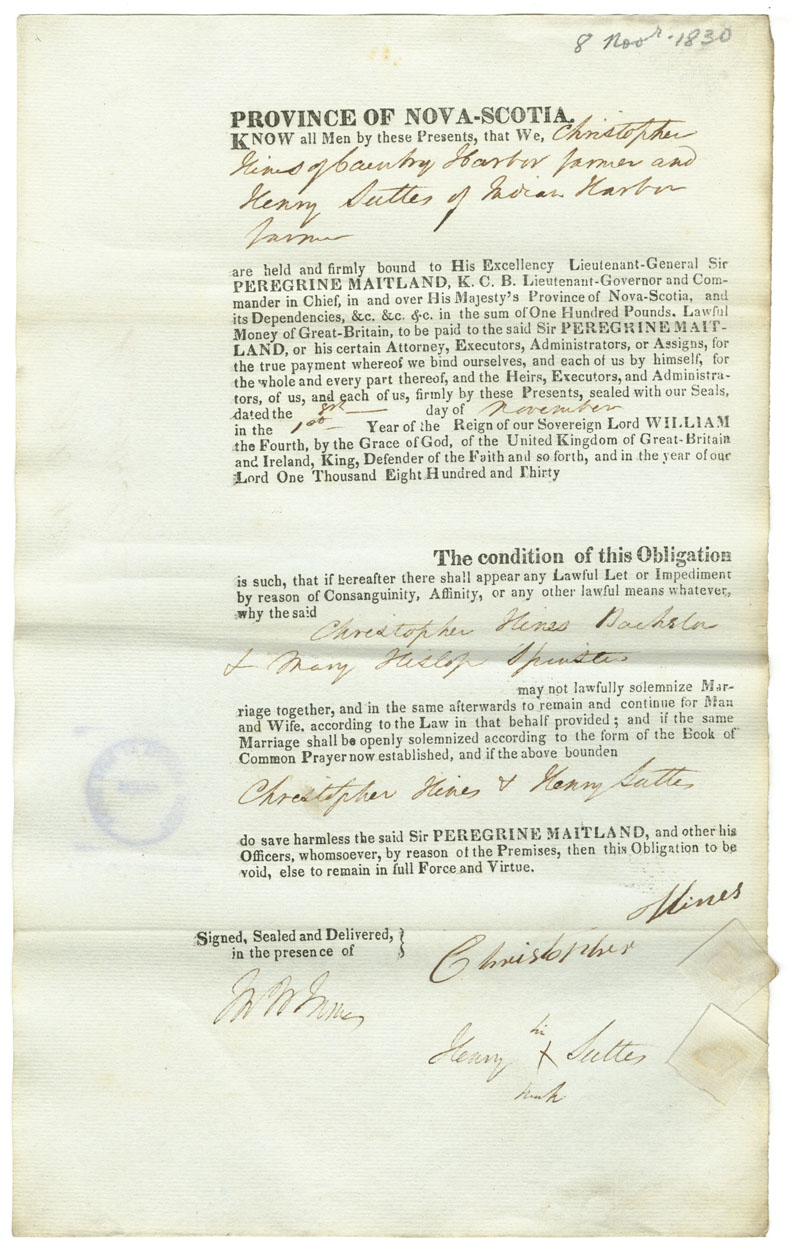 8 Novr. 1830
PROVINCE OF NOVA-SCOTIA.
KNOW all Men by these Presents, that We, Christopher
Hines of Country Harbor farmer and
Henry Suttes of Indian Harbor
farmer
are held and firmly bound to His Excellency Lieutenant-General Sir
PEREGRINE MAITLAND, K. C. B. Lieutenant-Governor and Com-
mander in Chief, in and over His Majesty's Province of Nova-Scotia, and
its Dependencies, &c. &c. &c. in the sum of One Hundred Pounds. Lawful
Money of Great-Britain, to be paid to the said Sir PEREGRINE MAIT-
LAND, or his certain Attorney, Executors, Administrators, or Assigns, for
the true payment whereof we bind ourselves, and each of us by himself, for
the whole and every part thereof, and the Heirs, Executors, and Administra-
tors, of us, and each of us, firmly by these Presents, sealed with our Seals,
dated the 8th day of November
in the 1st Year of the Reign of our Sovereign Lord WILLIAM
the Fourth, by the Grace of God, of the United Kingdom of Great-Britain
and Ireland, King, Defender of the Faith and so forth, and in the year of our
Lord One Thousand Eight Hundred and Thirty
The condition of this Obligation
is such, that if hereafter there shall appear any Lawful Let or Impediment
by reason of Consanguinity, Affinity, or any other lawful means whatever,
why the said
Christopher Hines Bachelor
& Mary Heslop Spinster
may not lawfully solemnize Mar-
riage together, and in the same afterwards to remain and continue for Man
and Wife, according to the Law in that behalf provided; and if the same
Marriage shall be openly solemnized according to the form of the Book of
Common Prayer now established, and if the above bounden
Christopher Hines & Henry Suttes
do save harmless the said Sir PEREGRINE MAITLAND, and other his
Officers, whomsoever, by reason of the Premises, then this Obligation to be
void, else to remain in full Force and Virtue.
Signed, Sealed and Delivered,
in the presence of
Christopher Hines
his
Henry X Suttes
mark